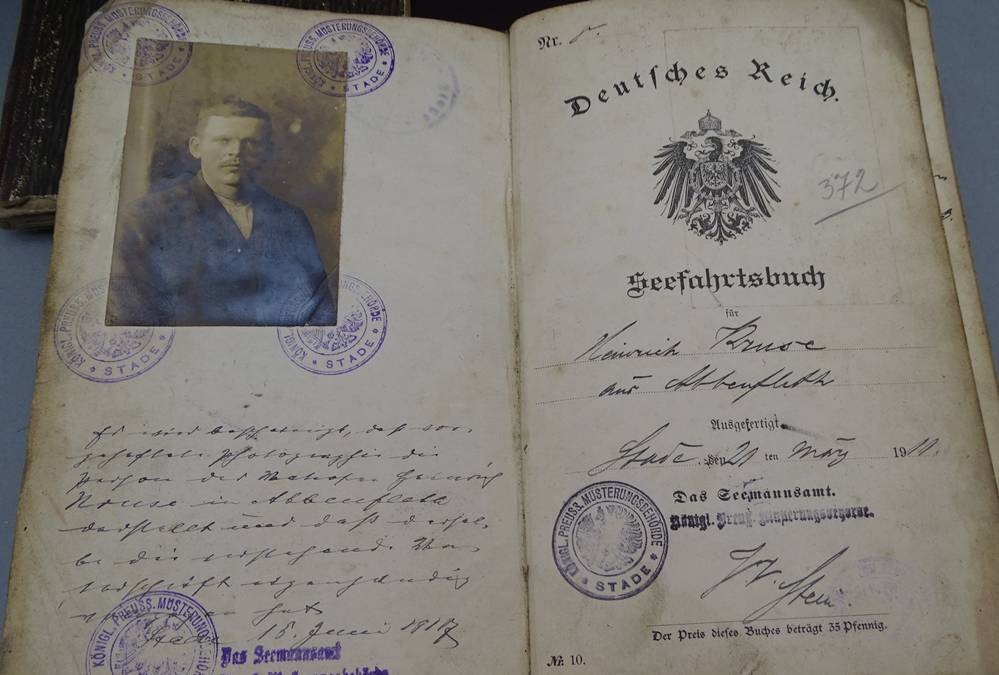 KÖNIGL. PREUSS. MUSTERUNGSBEHÖRDE
STADE
KÖNIGL. PREUSS. MUSTERUNGSBEHÖRDE
STADE
KÖNIGL. PREUSS. MUSTERUNGSBEHÖRDE
STADE
KÖNIGL. PREUSS. MUSTERUNGSBEHÖRDE
STADE
Es wird bescheinigt, daß vor-
geheftete Photographie die
Person des Heinrich
Kruse in Abbenfleth
darstellt und daß dersel-
be die
eigenhändig
hat
Stade 15. Juni 1917
KÖNIGL. PREUSS. MUSTERUNGSBEHÖRDE
Das Seemannsamt
Nr.
Deutsches Reich.
372
Seefahrtsbuch
für
Heinrich Kruse
aus Abbenfleth
Ausgefertigt
Stade, den 21 ten März 1911.
Das Seemannsamt.
Königl. Preuß. Musterungsbehörde.
KÖNIGL. PREUSS. MUSTERUNGSBEHÖRDE
STADE
Der Preis dieses Buches beträgt 35 Pfennig.
№ 10.